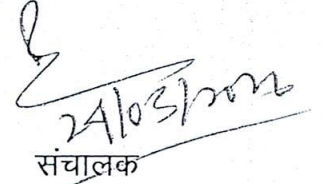 24/03/2022
संचालक